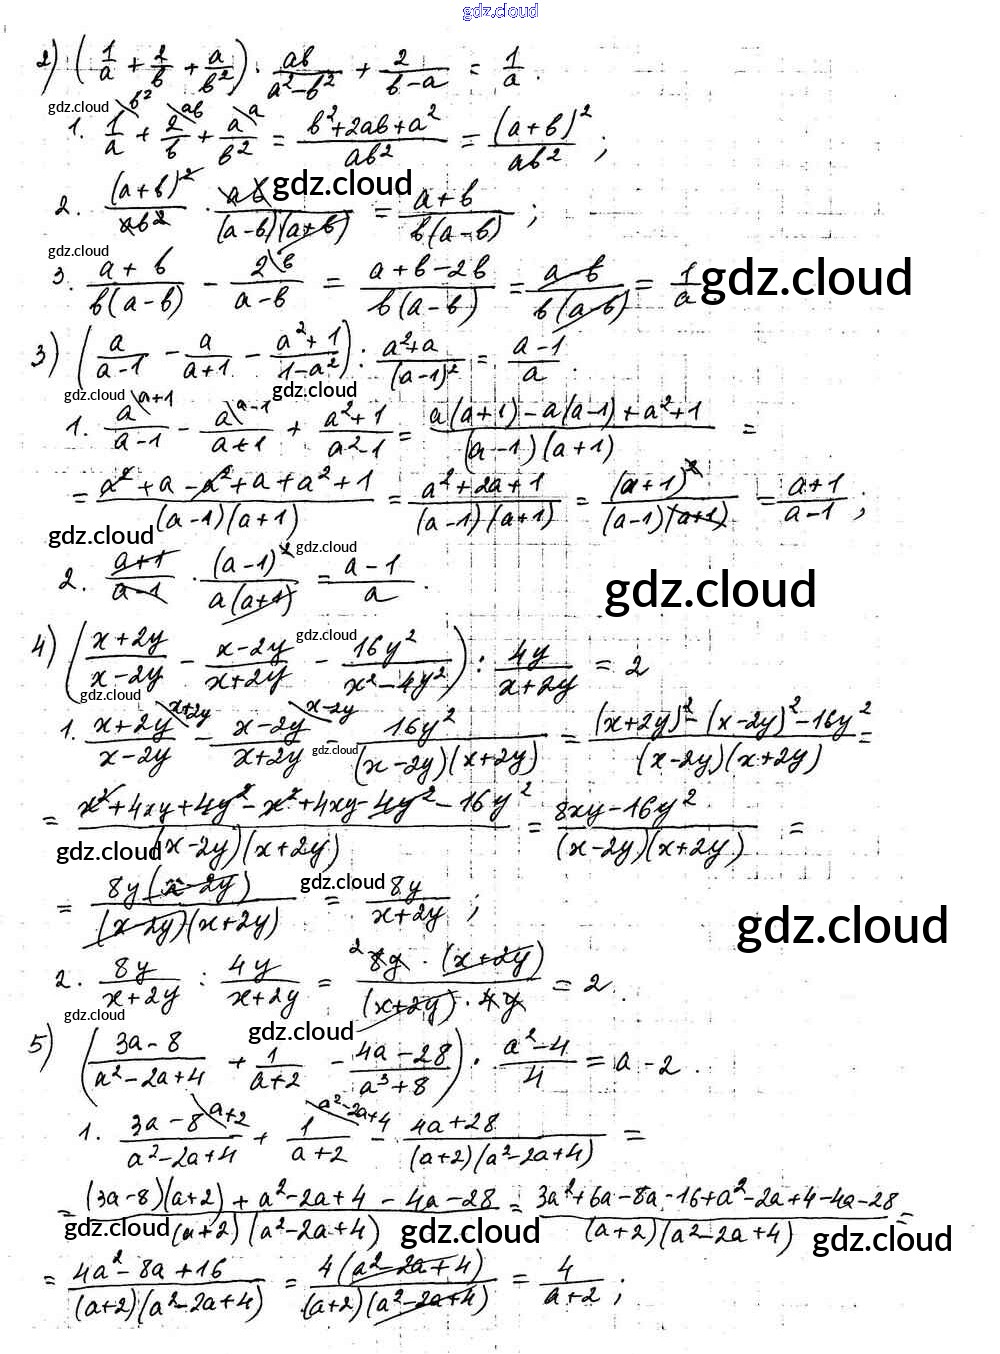 gdz.cloud
2) (1/a + 2/b + a/b²) · ab/(a²-b²) + 2/(b-a) = 1/a.
gdz.cloud
1. 1/a \b² + 2/b \ab + a/b² \a = (b²+2ab+a²)/(ab²) = (a+b)²/(ab²);
2. (a+b)²/(ab²) · ab/((a-b)(a+b)) = (a+b)/(b(a-b));
gdz.cloud
gdz.cloud
3. (a+b)/(b(a-b)) - 2\b/(a-b) = (a+b-2b)/(b(a-b)) = (a-b)/(b(a-b)) = 1/a
gdz.cloud
3) (a/(a-1) - a/(a+1) - (a²+1)/(1-a²)) : (a²+a)/(a-1)² = (a-1)/a.
gdz.cloud
gdz.cloud
1. a\a+1/(a-1) - a\a-1/(a+1) + (a²+1)/(a²-1) = (a(a+1)-a(a-1)+a²+1)/((a-1)(a+1)) =
= (a²+a-a²+a+a²+1)/((a-1)(a+1)) = (a²+2a+1)/((a-1)(a+1)) = (a+1)²/((a-1)(a+1)) = (a+1)/(a-1);
gdz.cloud
gdz.cloud
2. (a+1)/(a-1) · (a-1)²/(a(a+1)) = (a-1)/a.
gdz.cloud
4) ((x+2y)/(x-2y) - (x-2y)/(x+2y) - 16y²/(x²-4y²)) : 4y/(x+2y) = 2
gdz.cloud
gdz.cloud
1. (x+2y)\x+2y/(x-2y) - (x-2y)\x-2y/(x+2y) - 16y²/((x-2y)(x+2y)) = ((x+2y)²-(x-2y)²-16y²)/((x-2y)(x+2y)) =
gdz.cloud
= (x²+4xy+4y²-x²+4xy-4y²-16y²)/((x-2y)(x+2y)) = (8xy-16y²)/((x-2y)(x+2y)) =
gdz.cloud
= 8y(x-2y)/((x-2y)(x+2y)) = 8y/(x+2y);
gdz.cloud
gdz.cloud
2. 8y/(x+2y) : 4y/(x+2y) = ²8y·(x+2y)/((x+2y)·4y) = 2.
gdz.cloud
gdz.cloud
5) ((3a-8)/(a²-2a+4) + 1/(a+2) - (4a-28)/(a³+8)) · (a²-4)/4 = a-2.
1. (3a-8)\a+2/(a²-2a+4) + 1\a²-2a+4/(a+2) - (4a+28)/((a+2)(a²-2a+4)) =
= ((3a-8)(a+2)+a²-2a+4-4a-28)/((a+2)(a²-2a+4)) = (3a²+6a-8a-16+a²-2a+4-4a-28)/((a+2)(a²-2a+4)) =
gdz.cloud
gdz.cloud
gdz.cloud
= (4a²-8a+16)/((a+2)(a²-2a+4)) = 4(a²-2a+4)/((a+2)(a²-2a+4)) = 4/(a+2);